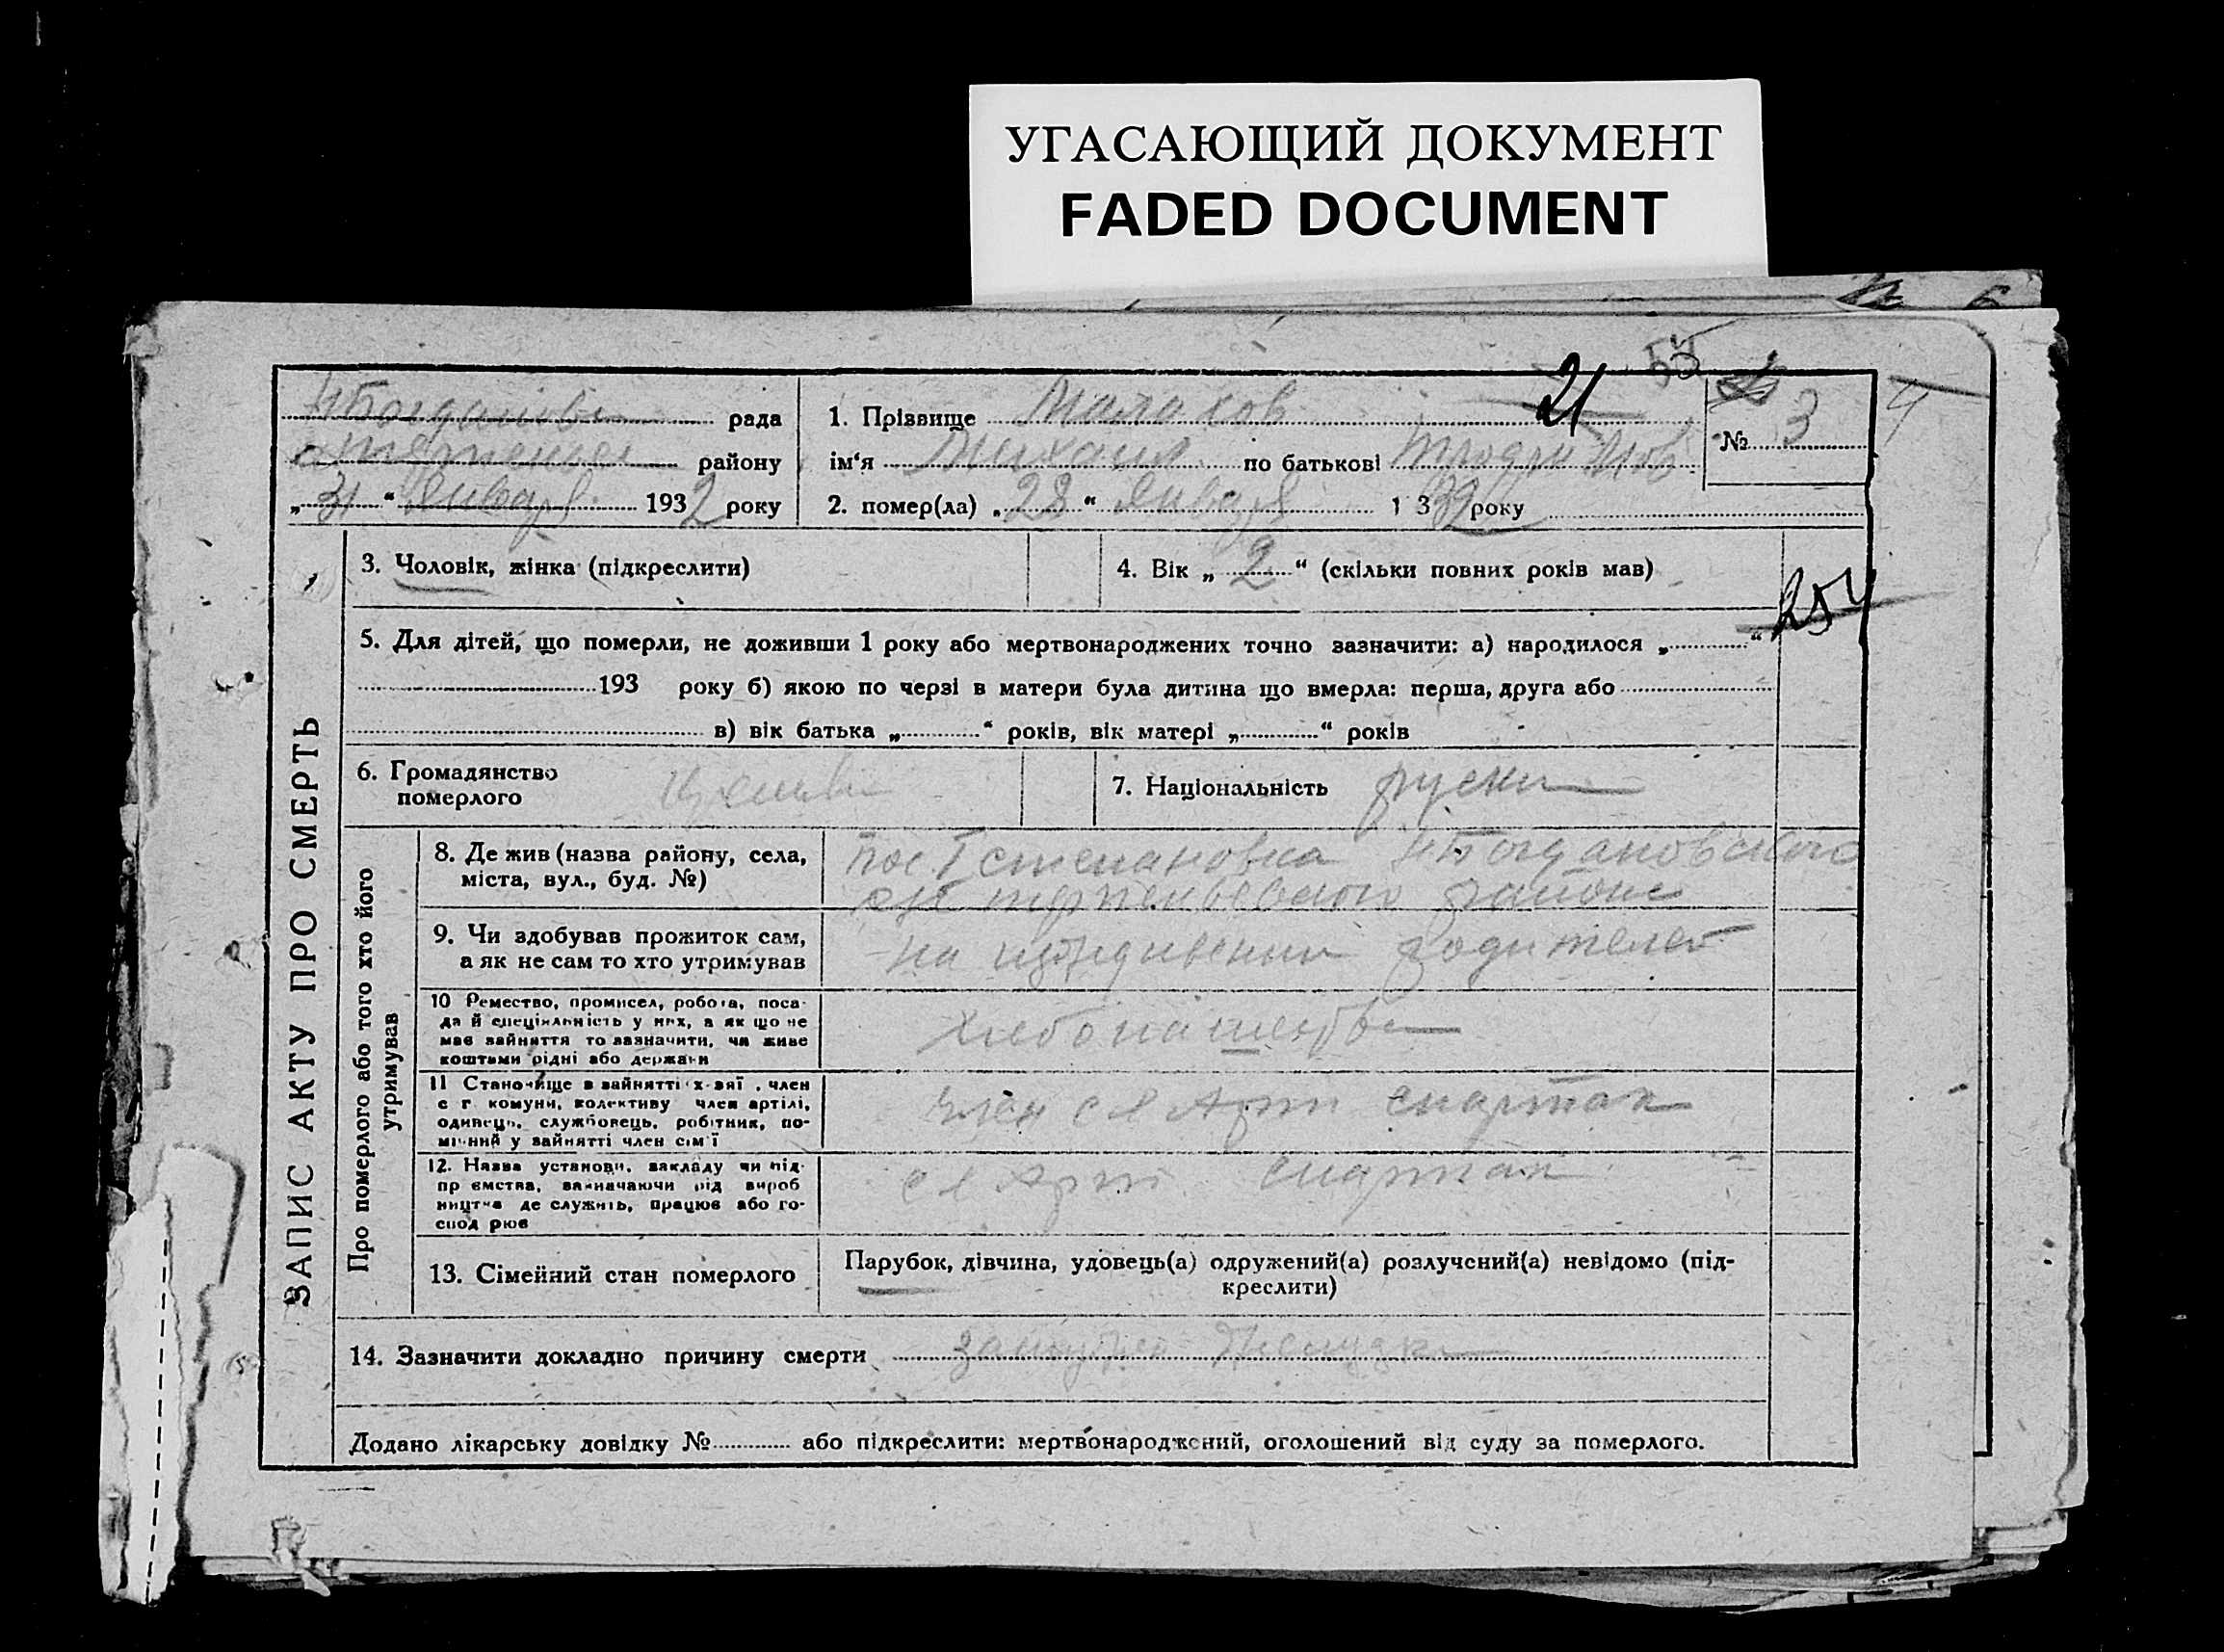 УГАСАЮЩИЙ ДОКУМЕНТ
FADED DOCUMENT
21
рада
району
„31“ Января 1932 року
1. Прізвище Малахов
ім‘я Михаил по батькові
2. помер(ла) „28“ Января 1 3 32 року
№ 3
4
ЗАПИС АКТУ ПРО СМЕРТЬ
3. Чоловік, жінка (підкреслити)
4. Вік „2“ (скільки повних років мав)
254
5. Для дітей, що померли, не доживши 1 року або мертвонароджених точно зазначити: а) народилося „ “
193 року б) якою по черзі в матери була дитина що вмерла: перша, друга або
в) вік батька „ “ років, вік матері „ “ років
6. Громадянство
померлого
7. Національність руски
Про померлого або того хто його
утримував
8. Де жив (назва району, села,
міста, вул., буд. №)
пос степановка Н Богдановского
района
9. Чи здобував прожиток сам,
а як не сам то хто утримував
на родителей
10 Ремество, промисел, робота, поса-
да й спеціяльність у них, а як що не
має зайняття то зазначити, чи живе
коштами рідні або держави
11 Становище в зайнятті х-зяї , член
с г. комуни, колективу член артілі,
одинець, службовець, робітник, по-
мічний у зайнятті член сім‘ї
член с х Арт спартак
12. Назва установи, закладу чи під-
пр ємства, зазначаючи рід вироб
ництва де служить, працює або го-
спод рює
с х Арт. спартак
13. Сімейний стан померлого
Парубок, дівчина, удовець(а) одружений(а) розлучений(а) невідомо (під-
креслити)
14. Зазначити докладно причину смерти
Додано лікарську довідку № або підкреслити: мертвонароджений, оголошений від суду за померлого.